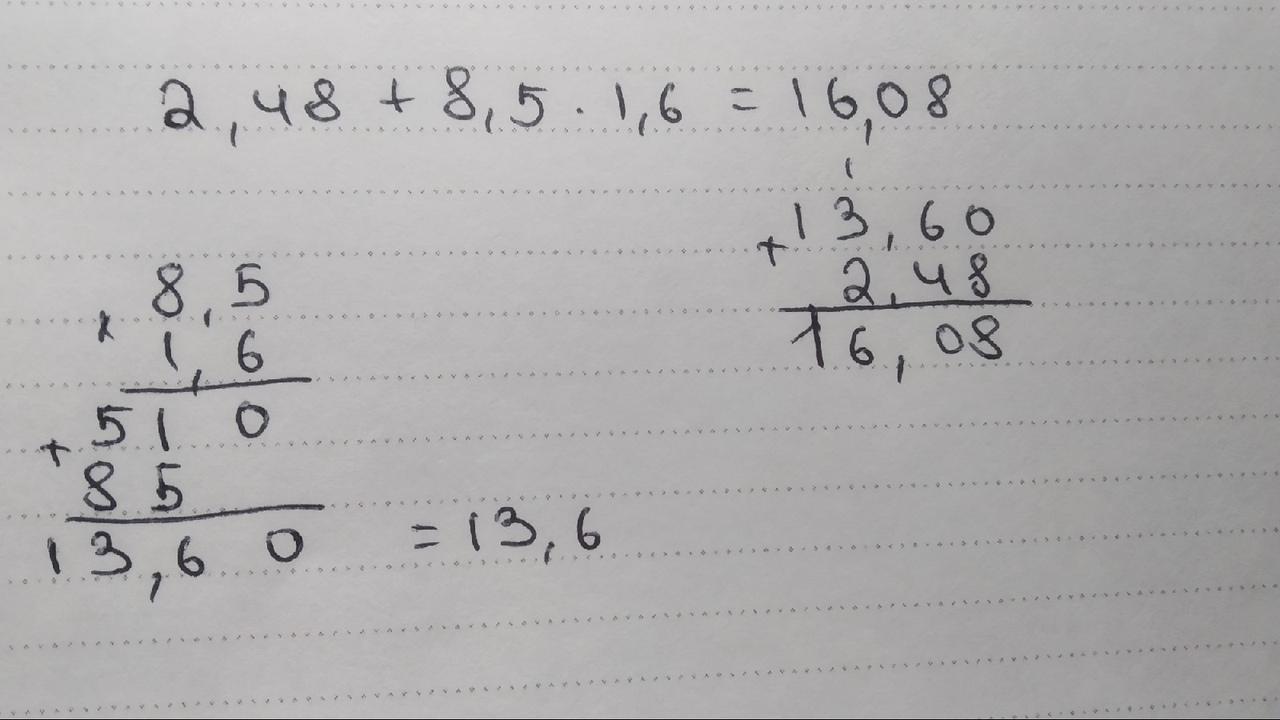 2,48 + 8,5 · 1,6 = 16,08
1
13,60
+ 2,48
16,08
8,5
x 1,6
510
+ 85
13,60 = 13,6